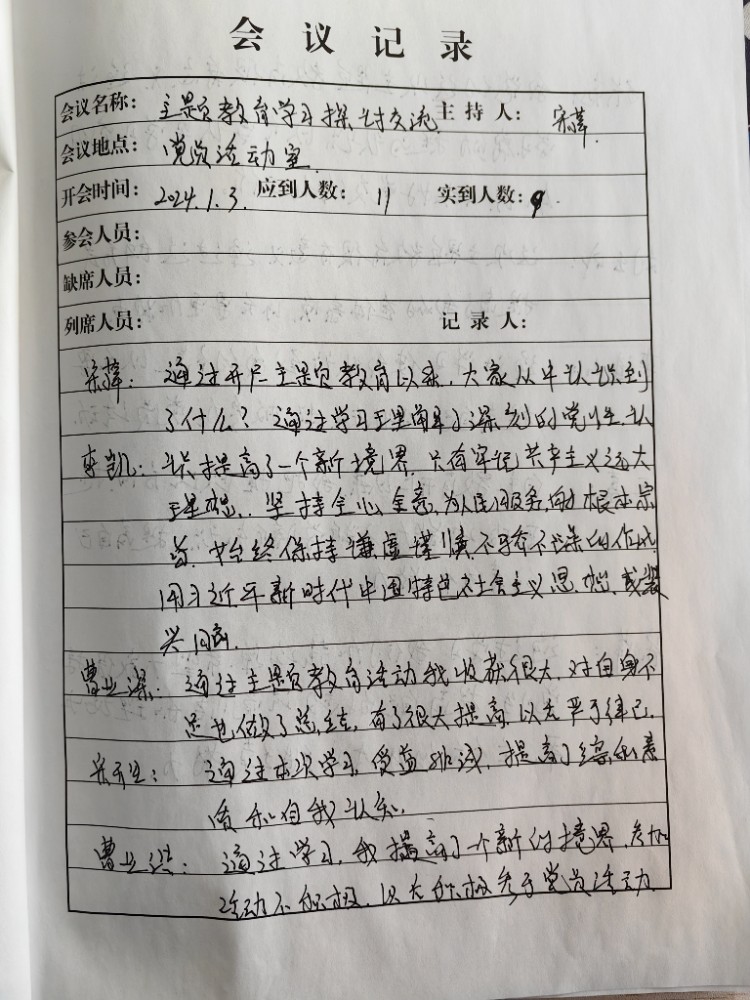 会议记录
会议名称: 主题教育学习探讨交流 主持人: 宋萍
会议地点: 党员活动室
开会时间: 2024.1.3. 应到人数: 11 实到人数: 9
参会人员:
缺席人员:
列席人员: 记录人:
宋萍: 通过开展主题教育以来,大家从中认识到
了什么? 通过学习理解了深刻的党性,认
李凯: 识提高了一个新境界,只有牢记共产主义远大
理想,坚持全心全意为人民服务的根本宗
旨,始终保持谦虚谨慎不骄不躁的作风
用习近平新时代中国特色社会主义思想,武装
头脑.
曹业深: 通过主题教育活动我收获很大,对自身不
足也做了总结,有了很大提高,以后严于律己.
通过本次学习,受益匪浅,提高了综合素
质和自我认知.
曹业洪: 通过学习,我提高了一个新的境界,参加
活动不积极,以后积极参于党员活动